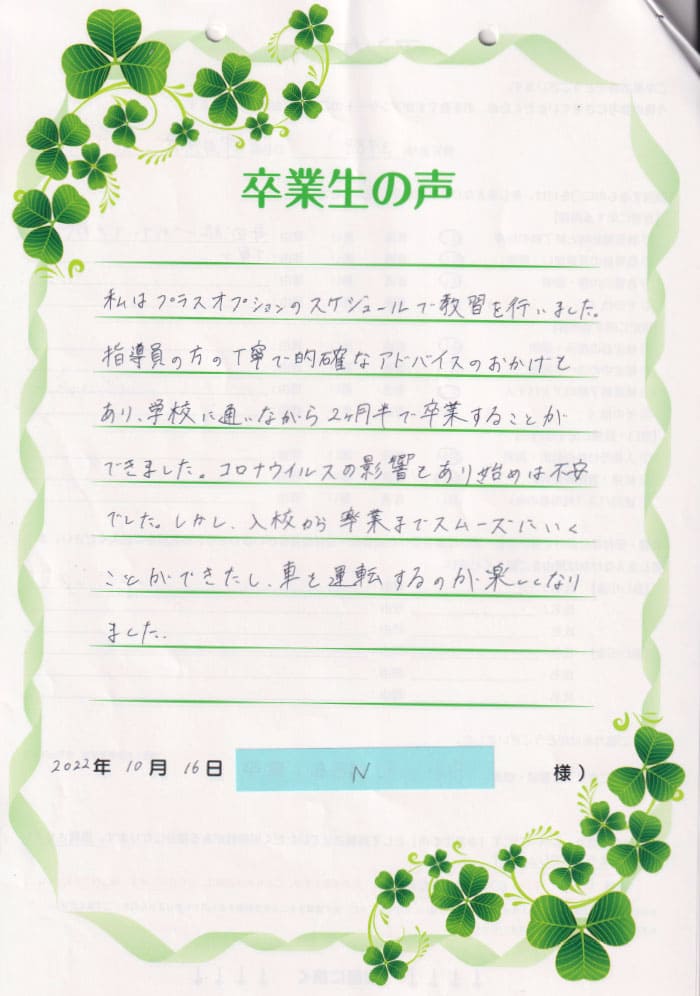 卒業生の声
私はプラスオプションのスケジュールで教習を行いました。
指導員の方の丁寧で的確なアドバイスのおかげも
あり、学校に通いながら2ヶ月半で卒業することが
できました。コロナウイルスの影響もあり始めは不安
でした。しかし、入校から卒業までスムーズにいく
ことができたし、車を運転するのが楽しくなり
ました。
2022年 10月 16日 N 様)